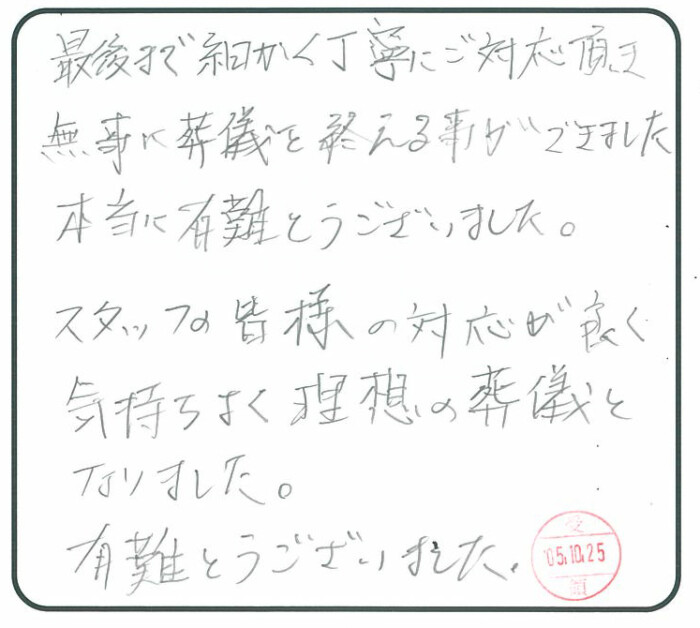 最後まで細かく丁寧にご対応頂き
無事に葬儀を終える事ができました
本当に有難とうございました。
スタッフの皆様の対応が良く
気持ちよく理想の葬儀と
なりました。
有難とうございました。
受
05.10.25
領